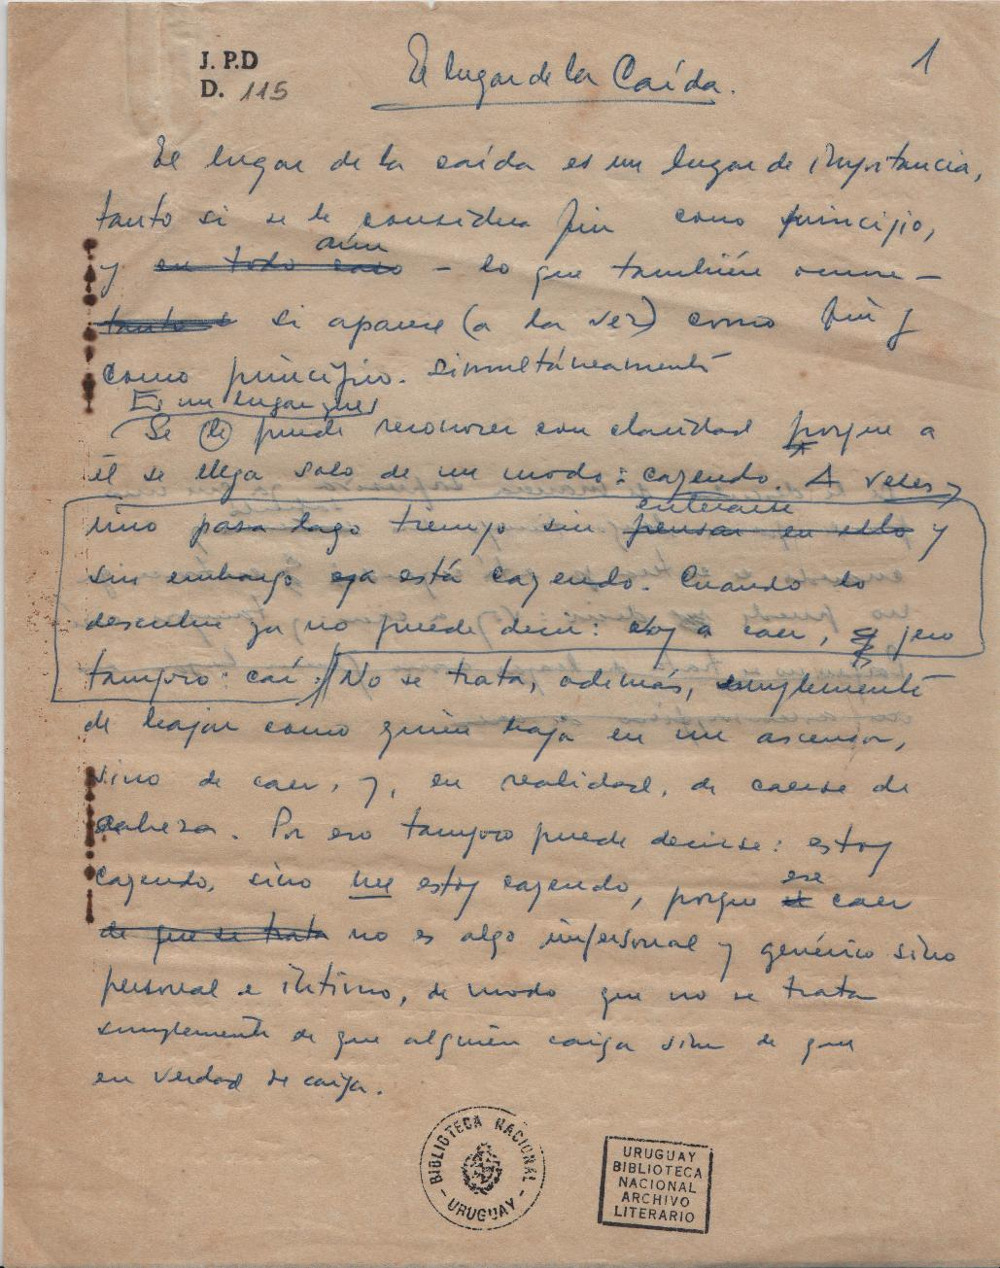 J. P.D
D. 115
El lugar de la Caída.
1
El lugar de la caída es un lugar de importancia,
tanto si se le considera fin como principio,
aún
y en todo caso – lo que también ocurre –
tanto s si aparece (a la vez) como fin y
como principio. simultáneamente
Es un lugar que
Se le puede reconocer con claridad porque a
él se llega solo de un modo: cayendo. A veces,
enterarse
uno pasa largo tiempo sin pensar en ello y
sin embargo ya está cayendo. Cuando lo
descubre ya no puede decir: voy a caer, pero
tampoco: caí. No se trata, además, simplemente
de bajar como quien baja en un ascensor,
sino de caer, y, en realidad, de caerse de
cabeza. Por eso tampoco puede decirse: estoy
cayendo, sino me estoy cayendo, porque
ese
caer
de que se trata no es algo impersonal y genérico sino
personal e íntimo, de modo que no se trata
simplemente de que alguien caiga sino de que
en verdad se caiga.
BIBLIOTECA NACIONAL
– URUGUAY –
URUGUAY
BIBLIOTECA
NACIONAL
ARCHIVO
LITERARIO